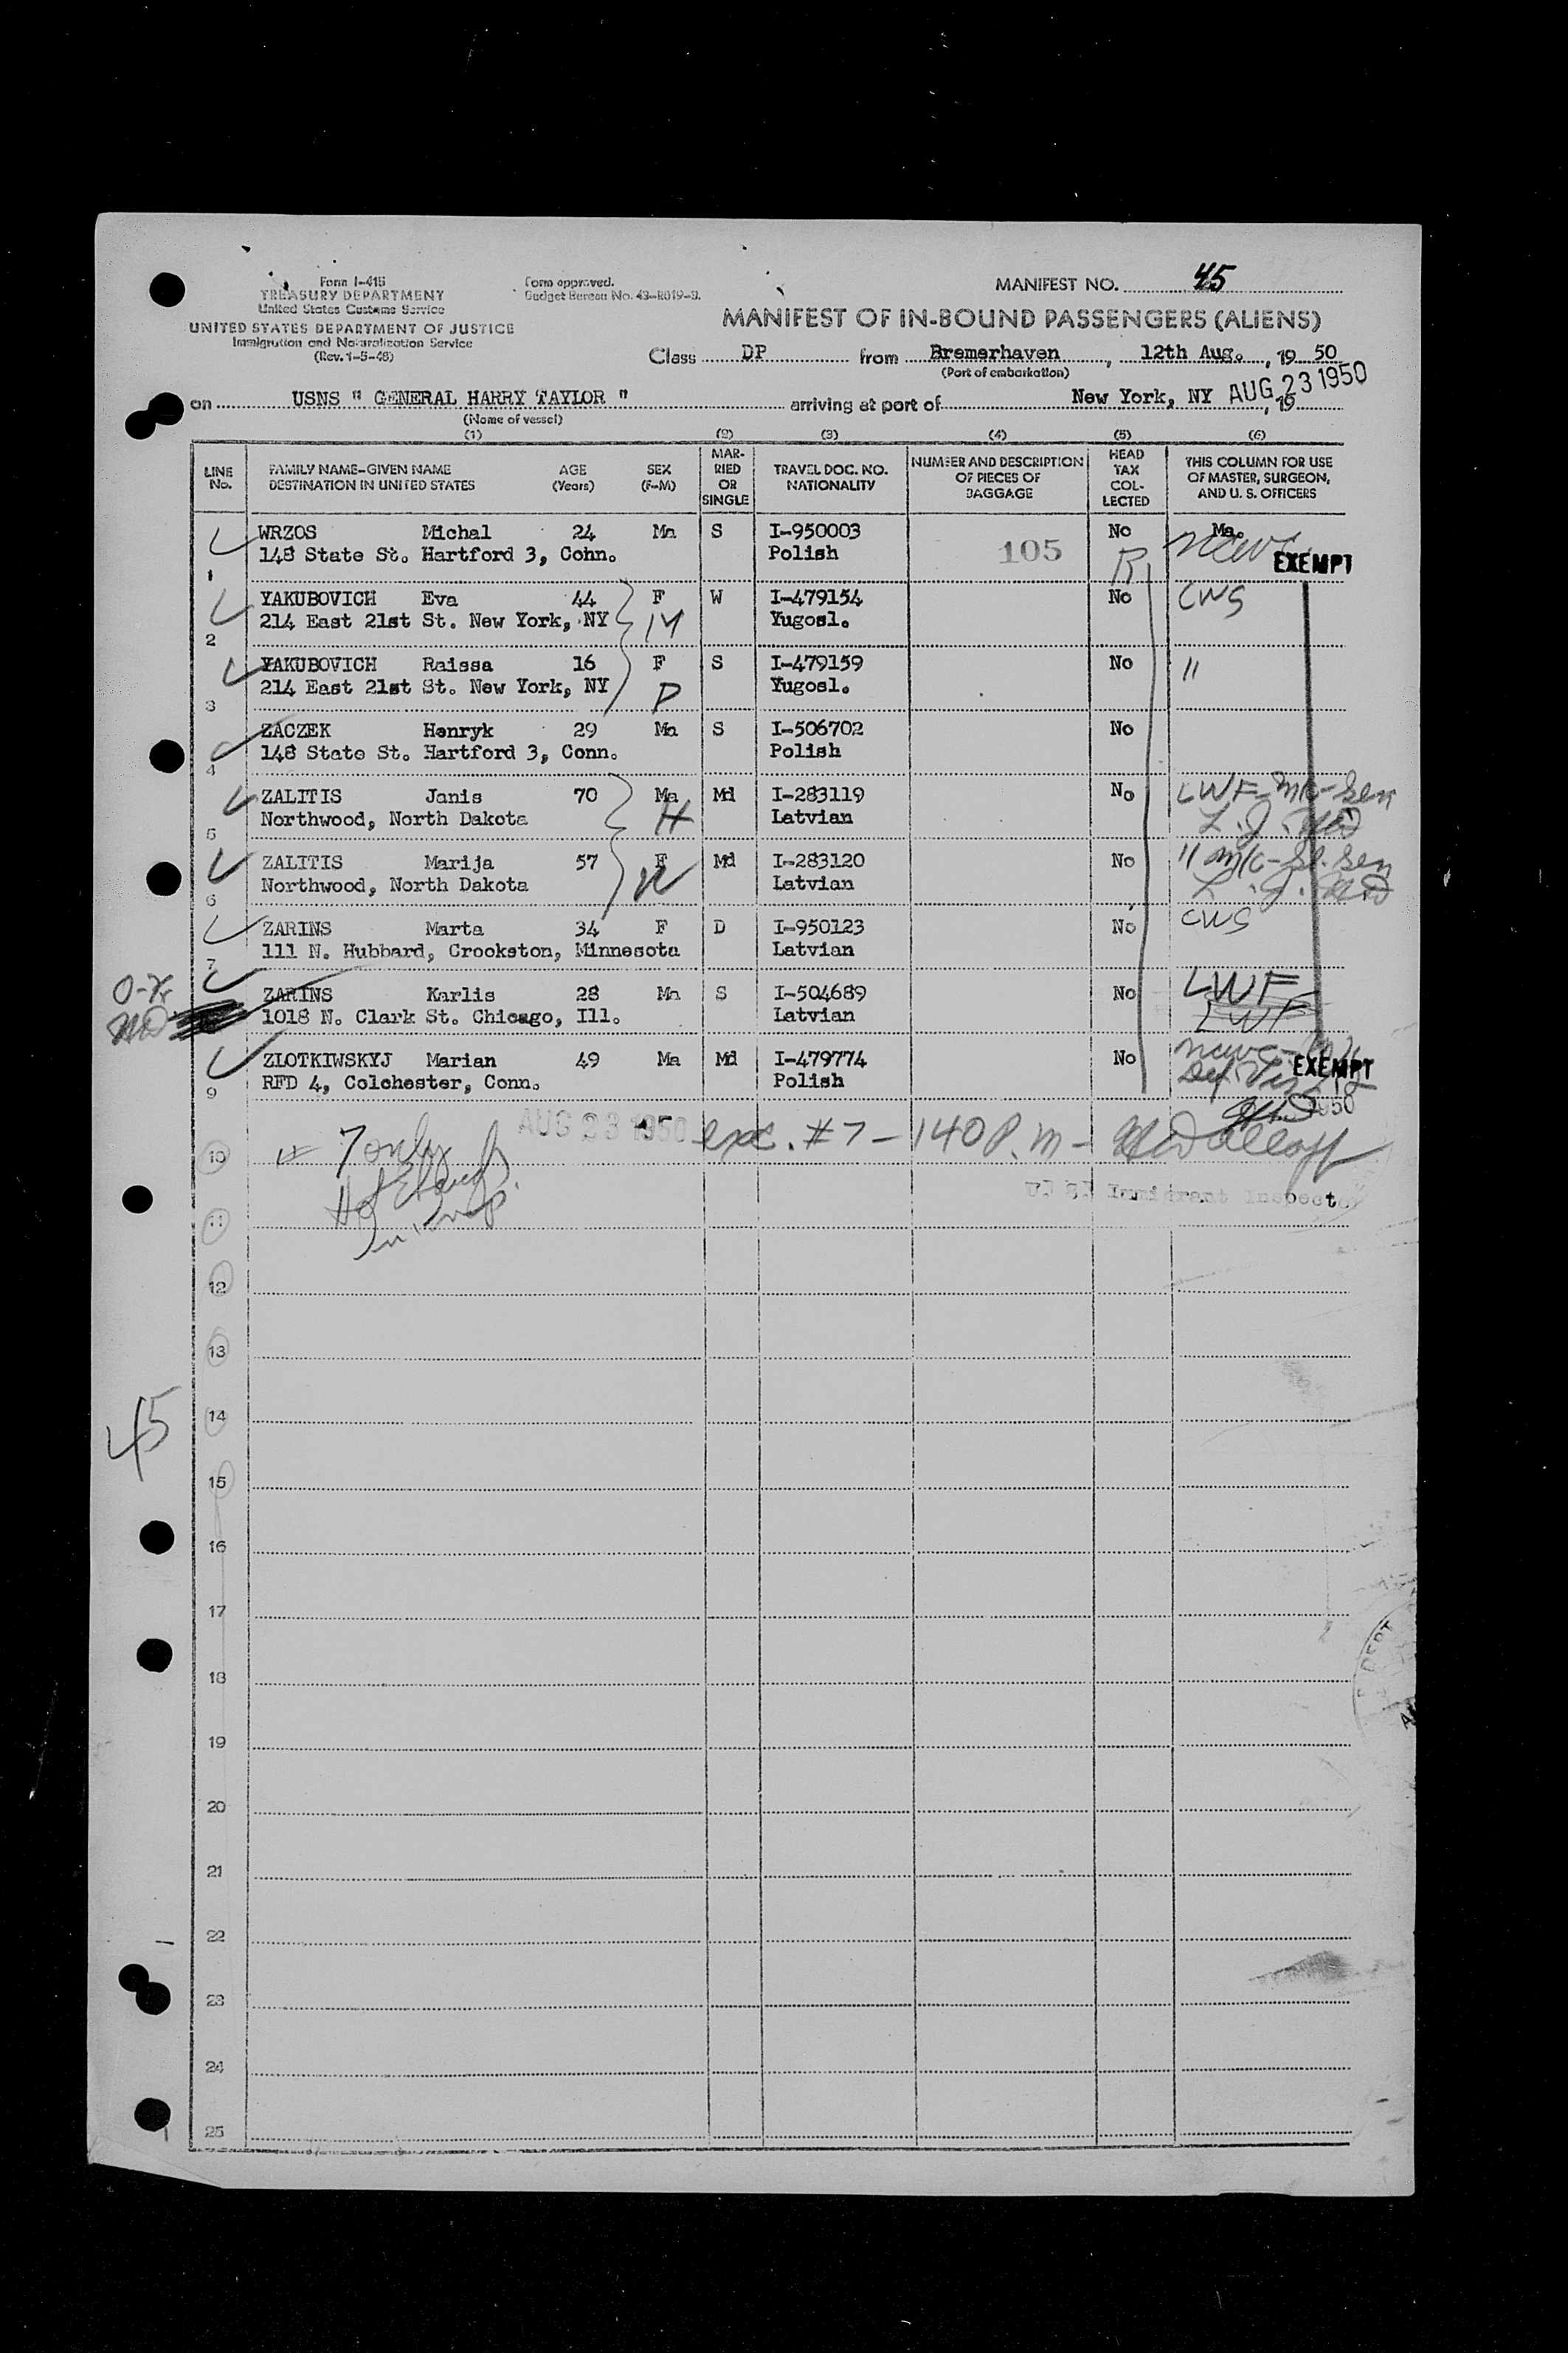 Form I-415
TREASURY DEPARTMENT
United States Customs Service
UNITED STATES DEPARTMENT OF JUSTICE
Immigration and Naturalization Service
(Rev. 1-5-48)
Form approved.
Budget Bureau No. 43-R019-3.
MANIFEST NO. 45
MANIFEST OF IN-BOUND PASSENGERS (ALIENS)
Class DP from Bremerhaven, 12th Aug., 19 50
(Port of embarkation)
on USNS " GENERAL HARRY TAYLOR " arriving at port of New York, NY AUG 23 1950, 19
(Name of vessel)
(1) (2) (3) (4) (5) (6)
LINE No. FAMILY NAME-GIVEN NAME DESTINATION IN UNITED STATES AGE (Years) SEX (F-M) MARRIED OR SINGLE TRAVEL DOC. NO. NATIONALITY NUMBER AND DESCRIPTION OF PIECES OF BAGGAGE HEAD TAX COLLECTED THIS COLUMN FOR USE OF MASTER, SURGEON, AND U. S. OFFICERS
1 WRZOS Michal 24 Ma S I-950003 No Ma
148 State St. Hartford 3, Conn. Polish 105 R ncwc EXEMPT
2 YAKUBOVICH Eva 44 F W I-479154 No CWS
214 East 21st St. New York, NY M Yugosl.
3 YAKUBOVICH Raissa 16 F S I-479159 No "
214 East 21st St. New York, NY D Yugosl.
4 ZACZEK Henryk 29 Ma S I-506702 No
148 State St. Hartford 3, Conn. Polish
5 ZALITIS Janis 70 Ma Md I-283119 No LWF m/c-Sen
Northwood, North Dakota H Latvian
6 ZALITIS Marija 57 F Md I-283120 No " m/c-Sl. Sen
Northwood, North Dakota W Latvian
7 ZARINS Marta 34 F D I-950123 No CWS
111 N. Hubbard, Crookston, Minnesota Latvian
O-K
ZARINS Karlis 28 Ma S I-504689 No LWF
1018 N. Clark St. Chicago, Ill. Latvian LWF
9 ZLOTKIWSKYJ Marian 49 Ma Md I-479774 No ncwc
RFD 4, Colchester, Conn. Polish EXEMPT
1950
10 # 7 only AUG 23 1950 exc. #7 - 140 P.m -
Immigrant Inspector
11
12
13
14
45
15
16
17
18
19
20
21
22
23
24
25
DEPT